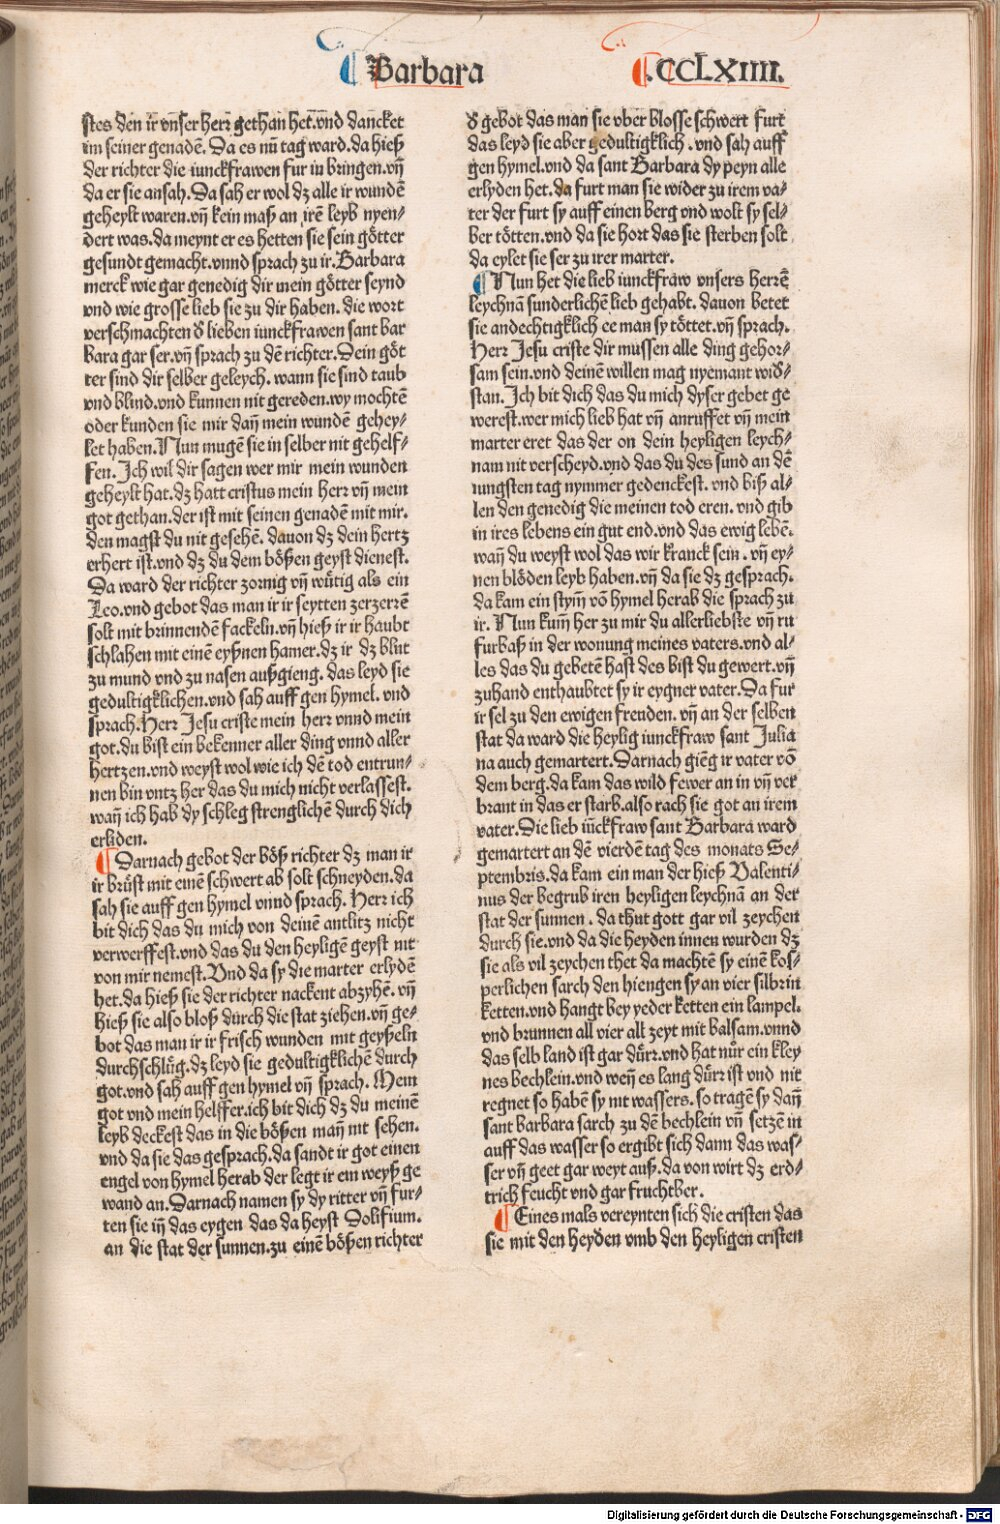 ¶ Barbara
¶.CCLXIIII.
stes den ir vnser herr gethan het.vnd dancket
im seiner genadē. Da es nū tag ward.da hieß
der richter die iunckfrawen fur in bringen.vn̄
da er sie ansah.Da sah er wol dz alle ir wundē
geheylt waren.vn̄ kein maß an irē leyb nyen⸗
dert was.da meynt er es hetten sie sein götter
gesundt gemacht.vnnd sprach zu ir.Barbara
merck wie gar genedig dir mein götter seynd
vnd wie grosse lieb sie zu dir haben. die wort
verschmachten d̄ lieben iunckfrawen sant bar
bara gar ser.vn̄ sprach zu dē richter.Dein göt
ter sind dir selber geleych. wann sie sind taub
vnd blind.vnd kunnen nit gereden.wy mochtē
oder kunden sie mir dan̄ mein wundē gehey⸗
let haben.Nun mugē sie in selber nit gehelf⸗
fen. Ich wil dir sagen wer mir mein wunden
geheylt hat.dz hatt cristus mein herr vn̄ mein
got gethan.der ist mit seinen genadē mit mir.
den magst du nit gesehē. dauon dz dein hertz
erhert ist.vnd dz du dem bößen geyst dienest.
Da ward der richter zornig vn̄ wütig als ein
Leo.vnd gebot das man ir ir seytten zerzerrē
solt mit brinnendē fackeln.vn̄ hieß ir ir haubt
schlahen mit einē eyßnen hamer.dz ir dz blut
zu mund vnd zu nasen außgieng. das leyd sie
gedultigklichen.vnd sah auff gen hymel. vnd
sprach.Herr Jesu criste mein herr vnnd mein
got.du bist ein bekenner aller ding vnnd aller
hertzen.vnd weyst wol wie ich dē tod entrun⸗
nen bin vntz her das du mich nicht verlassest.
wan̄ ich hab dy schleg strenglichē durch dich
erliden.
¶ Darnach gebot der böß richter dz man ir
ir brüst mit einē schwert ab solt schneyden.da
sah sie auff gen hymel vnnd sprach. Herr ich
bit dich das du mich von deinē antlitz nicht
verwerffest.vnd das du den heyligē geyst nit
von mir nemest.Vnd da sy die marter erlydē
het.da hieß sie der richter nackent abzyhē.vn̄
hieß sie also bloß durch die stat ziehen.vn̄ ge⸗
bot das man ir ir frisch wunden mit geyßeln
durchschlüg.dz leyd sie gedultigklichē durch
got.vnd sah auff gen hymel vn̄ sprach. Mein
got vnd mein helffer.ich bit dich dz du meinē
leyb deckest das in die bößen man̄ nit sehen.
vnd da sie das gesprach.da sandt ir got einen
engel von hymel herab der legt ir ein weyß ge
wand an.Darnach namen sy dy ritter vn̄ fur⸗
ten sie in̄ das eygen das da heyst Solifium.
an die stat der sunnen.zu einē bößen richter
d̄ gebot das man sie vber blosse schwert furt
das leyd sie aber gedultigklich . vnd sah auff
gen hymel.vnd da sant Barbara dy peyn alle
erlyden het.da furt man sie wider zu irem va⸗
ter der furt sy auff einen berg vnd wolt sy sel⸗
ber tötten.vnd da sie hort das sie sterben solt
da eylet sie ser zu irer marter.
¶ Nun het die lieb iunckfraw vnsers herrē
leychnā sunderlichē lieb gehabt. dauon betet
sie andechtigklich ee man sy töttet.vn̄ sprach.
Herr Jesu criste dir mussen alle ding gehor⸗
sam sein.vnd deinē willen mag nyemant wid̄⸗
stan. Ich bit dich das du mich dyser gebet ge
werest.wer mich lieb hat vn̄ anruffet vn̄ mein
marter eret das der on dein heyligen leych⸗
nam nit verscheyd.vnd das du des sund an dē
iungsten tag nymmer gedenckest. vnd biß al⸗
len den genedig die meinen tod eren. vnd gib
in ires lebens ein gut end.vnd das ewig lebē.
wan̄ du weyst wol das wir kranck sein . vn̄ ey⸗
nen blöden leyb haben.vn̄ da sie dz gesprach.
da kam ein stym̄ vō hymel herab die sprach zu
ir. Nun kum̄ her zu mir du allerliebste vn̄ ru
furbaß in der wonung meines vaters.vnd al⸗
les das du gebetē hast des bist du gewert.vn̄
zuhand enthaubtet sy ir eygner vater.Da fur
ir sel zu den ewigen freuden. vn̄ an der selben
stat da ward die heylig iunckfraw sant Julia
na auch gemartert.Darnach giēg ir vater vō
dem berg.da kam das wild fewer an in vn̄ ver
brant in das er starb.also rach sie got an irem
vater.Die lieb iūckfraw sant Barbara ward
gemartert an dē vierdē tag des monats Se⸗
ptembris.da kam ein man der hieß Valenti⸗
nus der begrub iren heyligen leychnā an der
stat der sunnen . da thut gott gar vil zeychen
durch sie.vnd da die heyden innen wurden dz
sie als vil zeychen thet da machtē sy einē kos⸗
perlichen sarch den hiengen sy an vier silbrin
ketten.vnd hangt bey yeder ketten ein lampel.
vnd brunnen all vier all zeyt mit balsam.vnnd
das selb land ist gar dürr.vnd hat nür ein kley
nes bechlein.vnd wen̄ es lang dürr ist vnd nit
regnet so habē sy nit wassers. so tragē sy dan̄
sant barbara sarch zu dē bechlein vn̄ setzē in
auff das wasser so ergibt sich dann das was⸗
ser vn̄ geet gar weyt auß.da von wirt dz erd⸗
trich feucht vnd gar fruchtber.
¶ Eines mals vereynten sich die cristen das
sie mit den heyden vmb den heyligen cristen
Digitalisierung gefördert durch die Deutsche Forschungsgemeinschaft - DFG